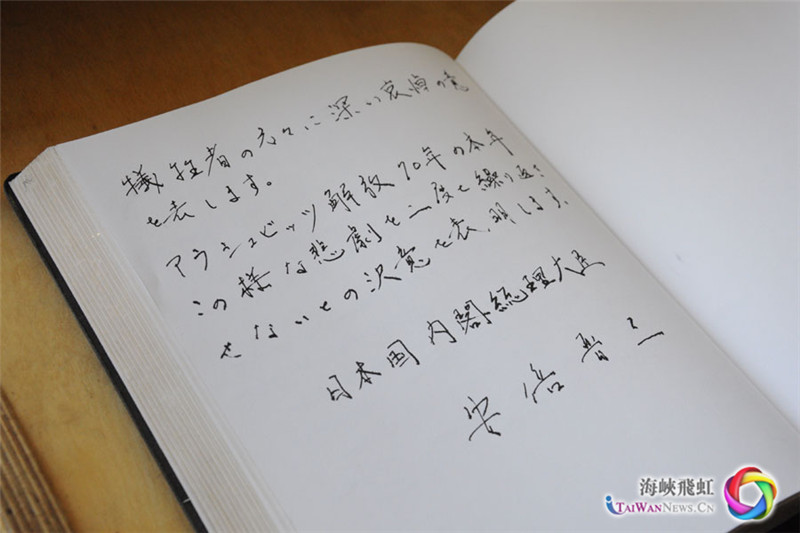 犠牲者の方々に深い哀悼の意
を表します。
アウシュビッツ解放70年の本年
この様な悲劇を二度と繰り返さ
せないとの決意を表明します。
日本国 内閣総理大臣
安倍晋三
海峽飛虹
iTaiWanNews.Cn